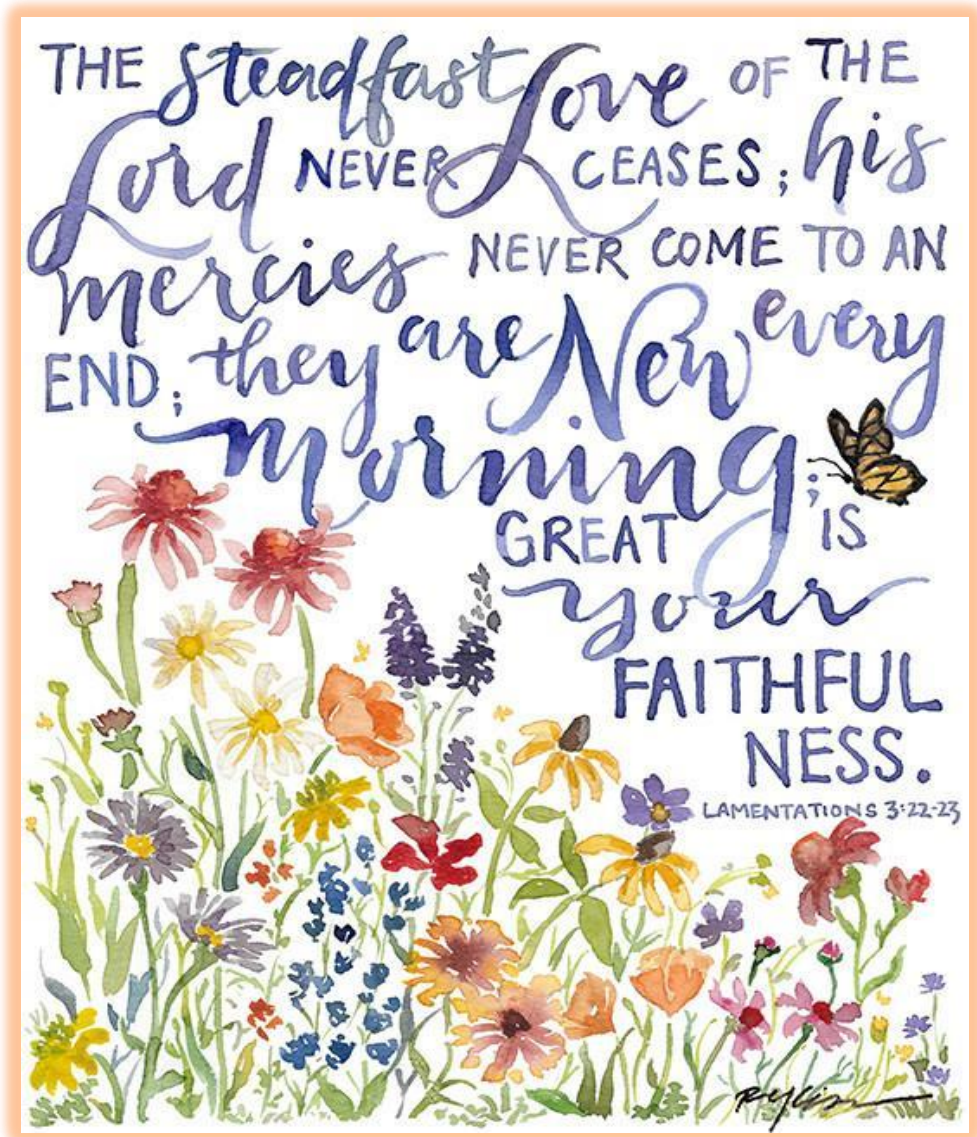 THE steadfast Love OF THE
Lord NEVER CEASES; his
mercies NEVER COME TO AN
END; they are New every
morning;
GREAT IS
your
FAITHFUL
NESS.
LAMENTATIONS 3:22-23